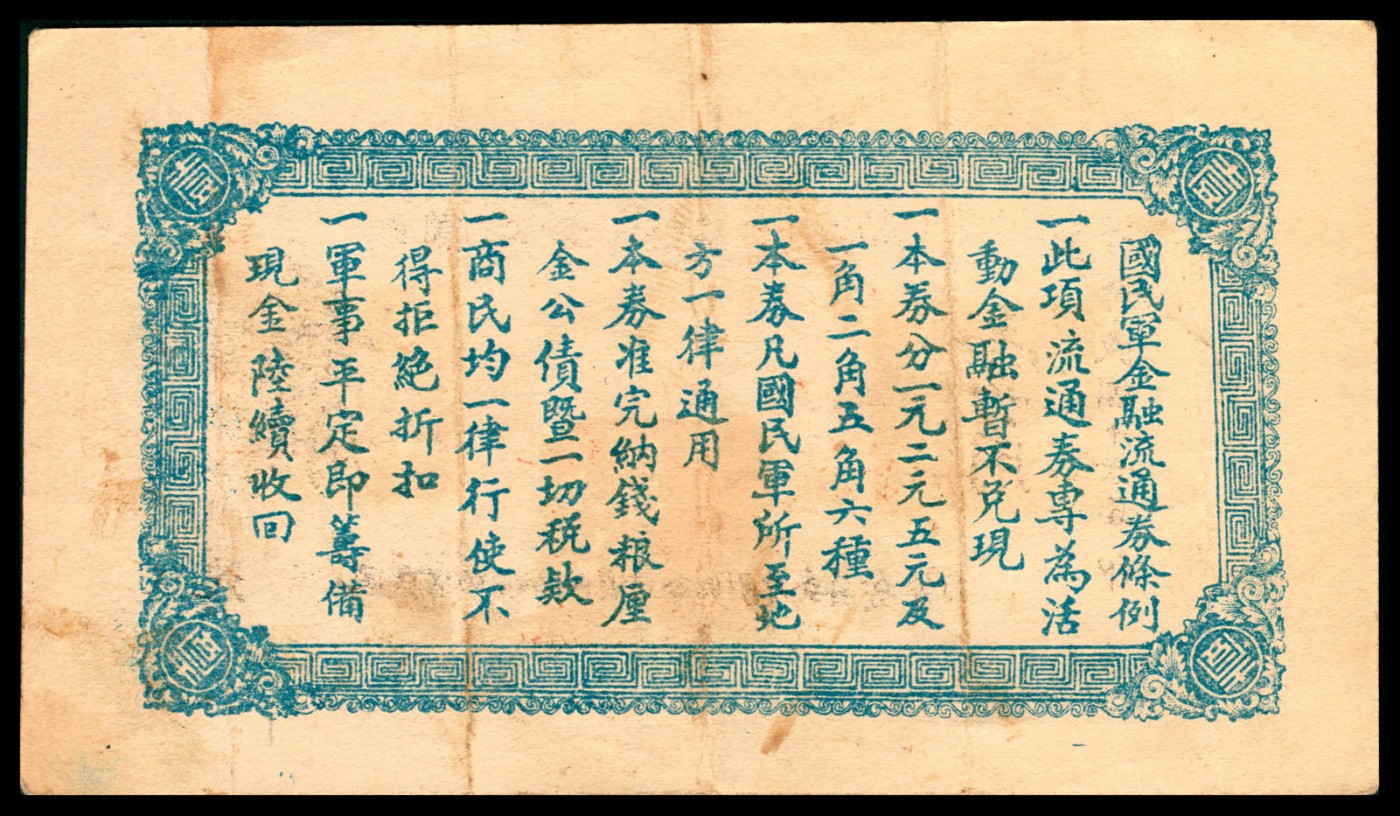 國民軍金融流通券條例
一此項流通券專為活
動金融暫不兑現
一本券分一元二元五元及
一角二角五角六種
一本券凡國民軍所至地
方一律通用
一本券准完納錢粮厘
金公債暨一切税款
一商民均一律行使不
得拒絶折扣
一軍事平定即籌備
現金陸續收回